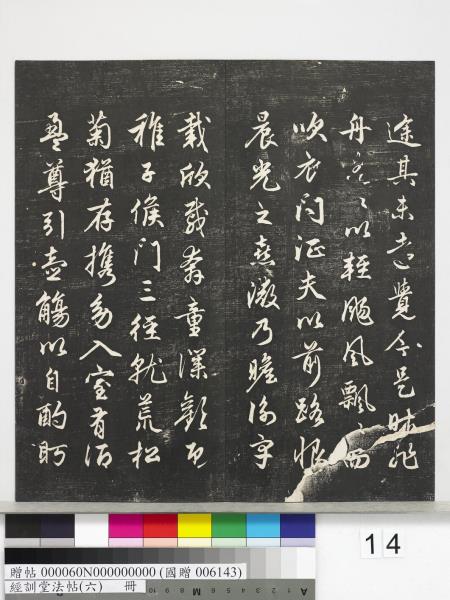 途其未遠覺今是昨非
舟遙〻以輕颺風飄〻而
吹衣問征夫以前路恨
晨光之熹微乃瞻衡宇
載欣載奔童僕歡迎
稚子候門三徑就荒松
菊猶存攜幼入室有酒
盈尊引壺觴以自酌眄
14
贈帖 000060N000000000 (國贈 006143)
經訓堂法帖(六) 冊